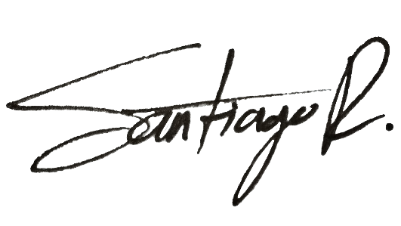 Santiago R.